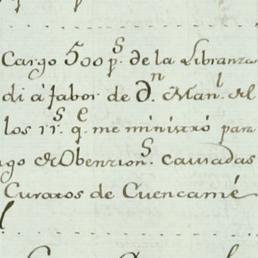 Cargo 500 p.s de la Libranza
di á fabor de D.n Man.l del
los 11 s. q.e me ministró para
go de Obencion.s causadas
Curatos de Cuencamé